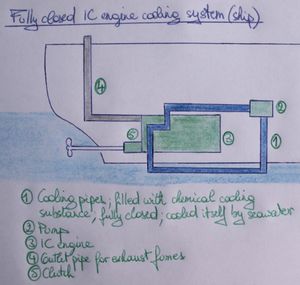 Fully closed IC engine cooling system (ship)
④ ② ⑤ ③ ①
① Cooling pipes; filled with chemical cooling
substance; fully closed; cooled itself by seawater
② Pump
③ IC engine
④ Outlet pipe for exhaust fumes
⑤ Clutch